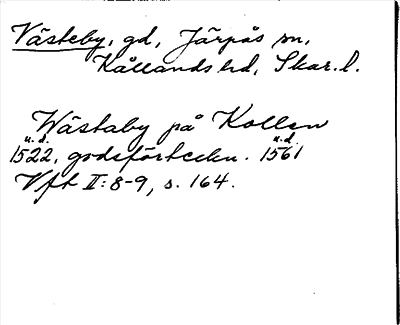 Västeby, gd, Järpås sn,
Kållands hd, Skar. l.
Wästaby på Kollen
u.d. u.d.
1522, godsförteckn. 1561
Vft II: 8-9, s. 164.